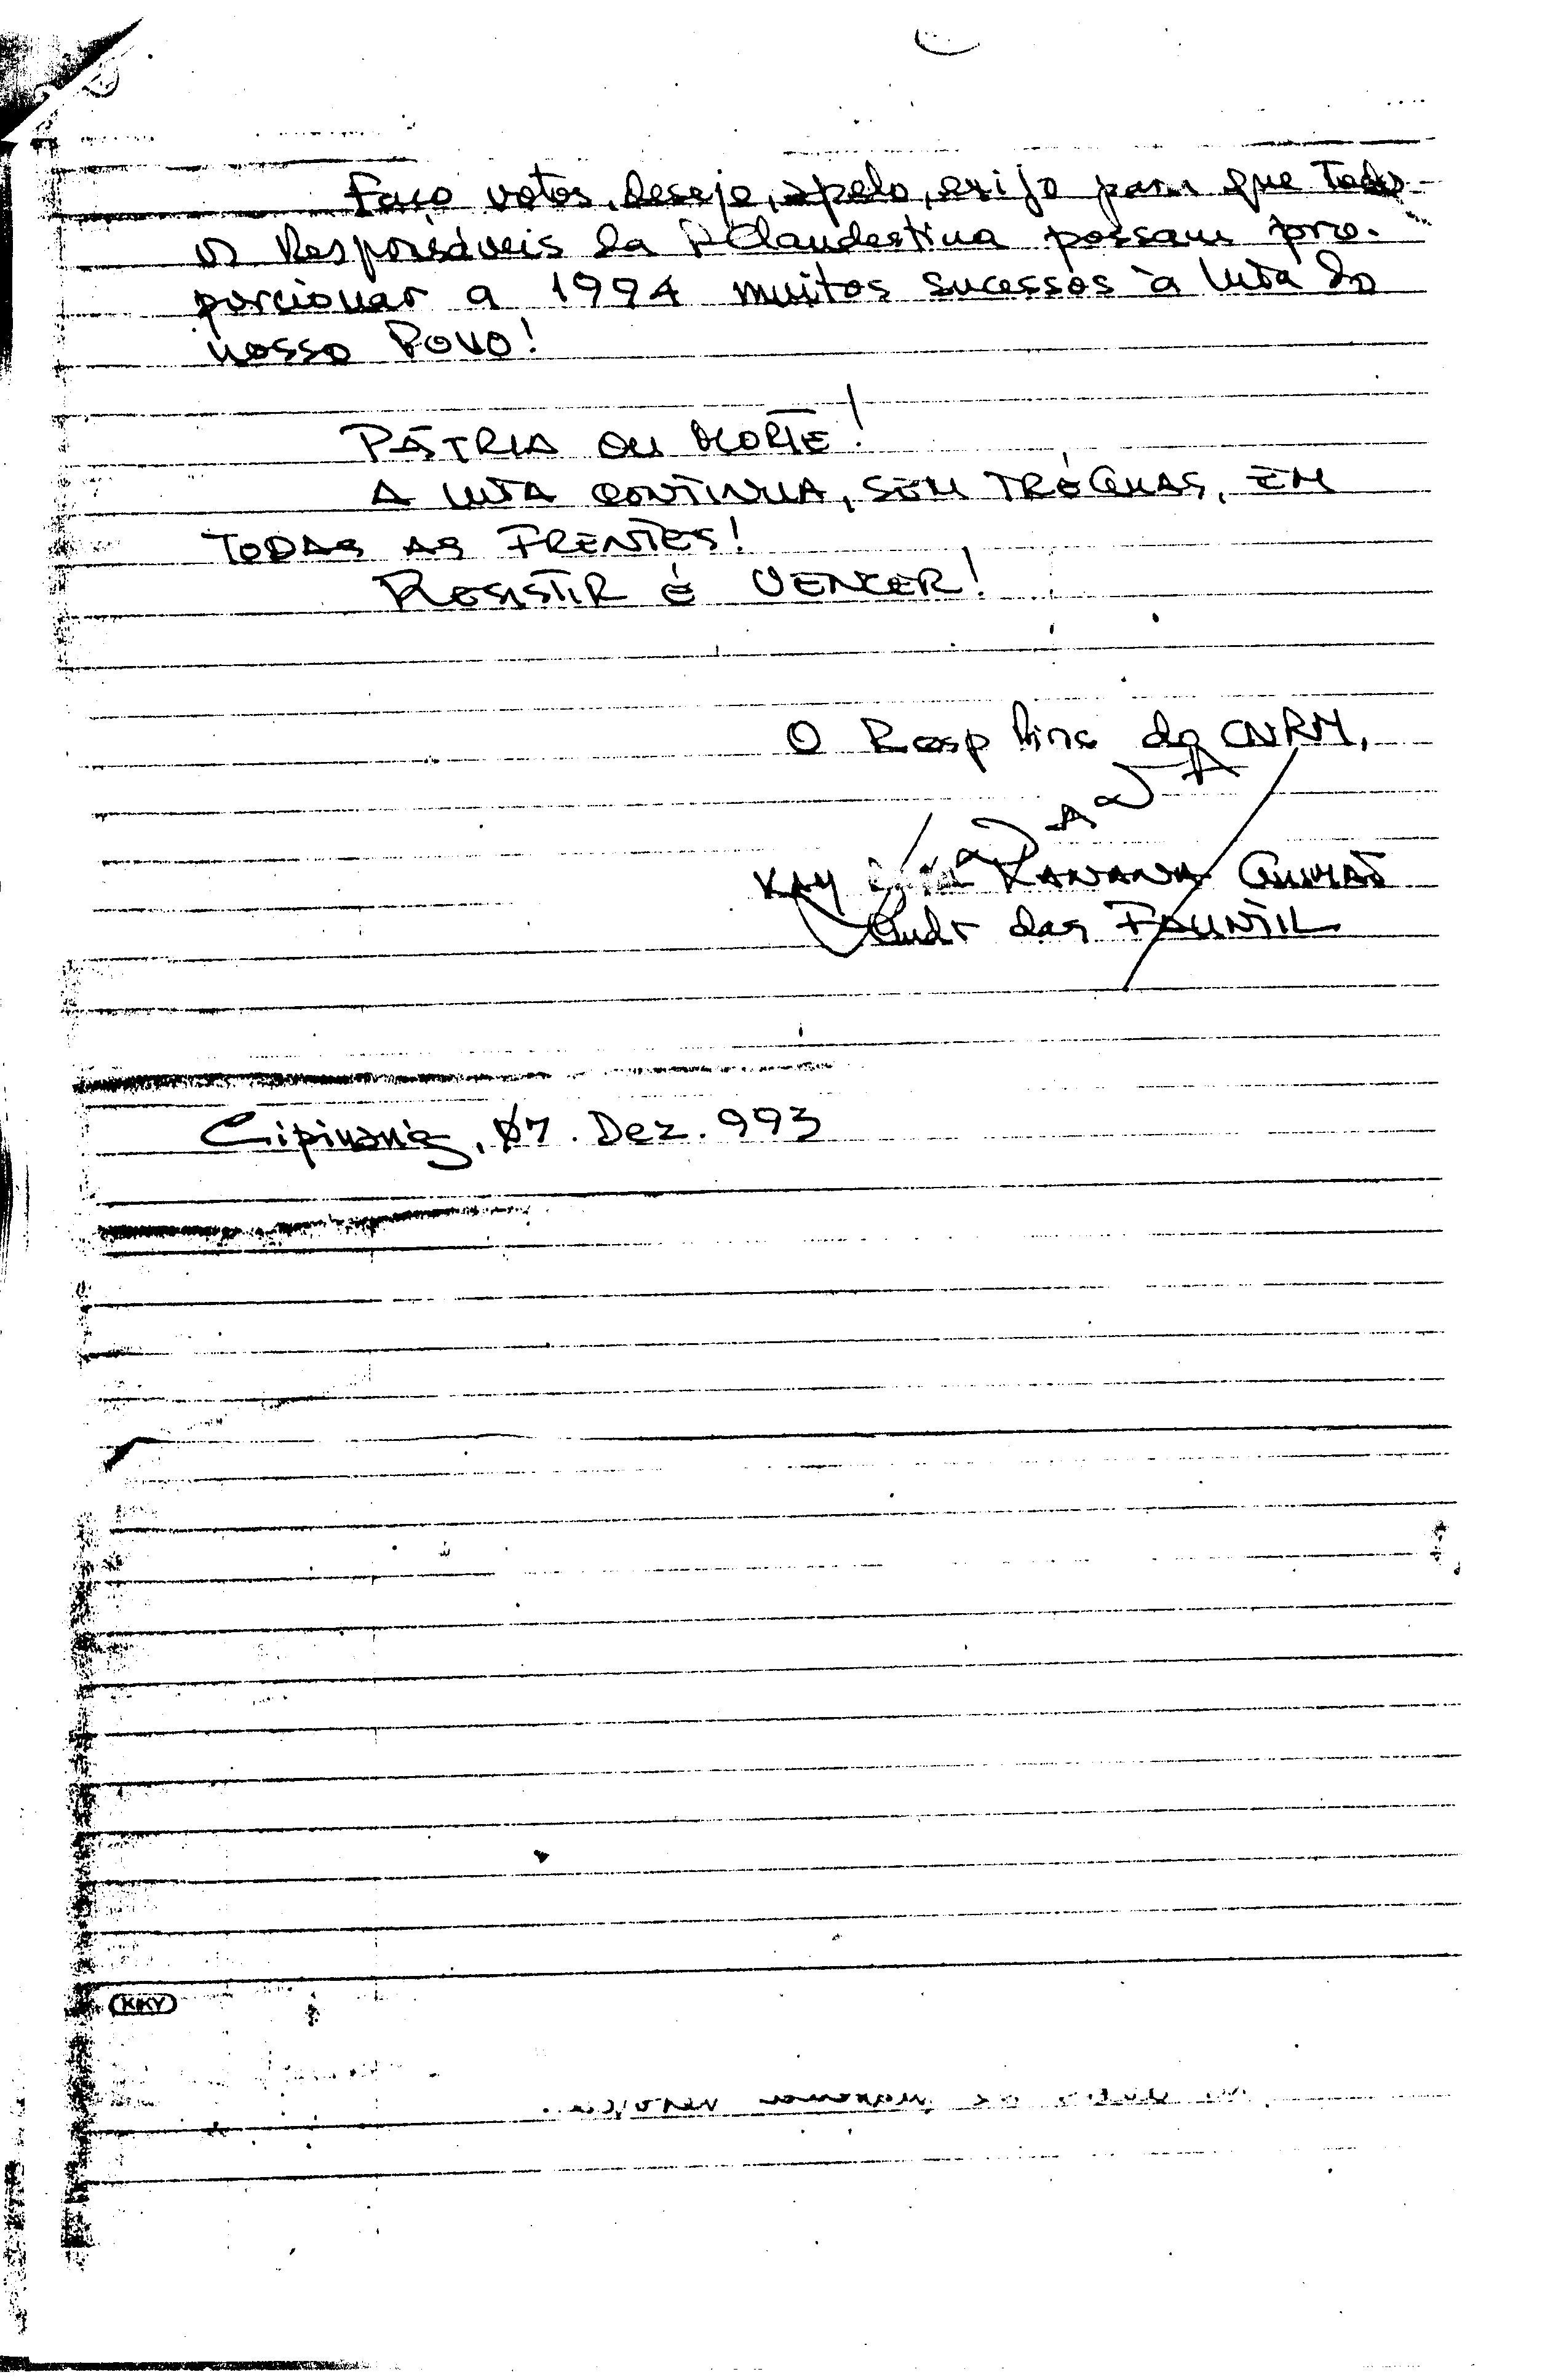 Faço votos, desejo, apelo, exijo para que Todos
os Responsáveis da RClandestina possam pro-
porcionar a 1994 muitos sucessos à luta do
nosso Povo!
PÁTRIA OU MORTE!
A LUTA CONTINUA, SEM TRÉGUAS, EM
TODAS AS FRENTES!
RESISTIR É VENCER!
O Resp Princ do CNRM,
KAY RALA XANANA GUSMÃO
Cmdt das FALINTIL
Cipinang, 07. Dez. 993
KKY